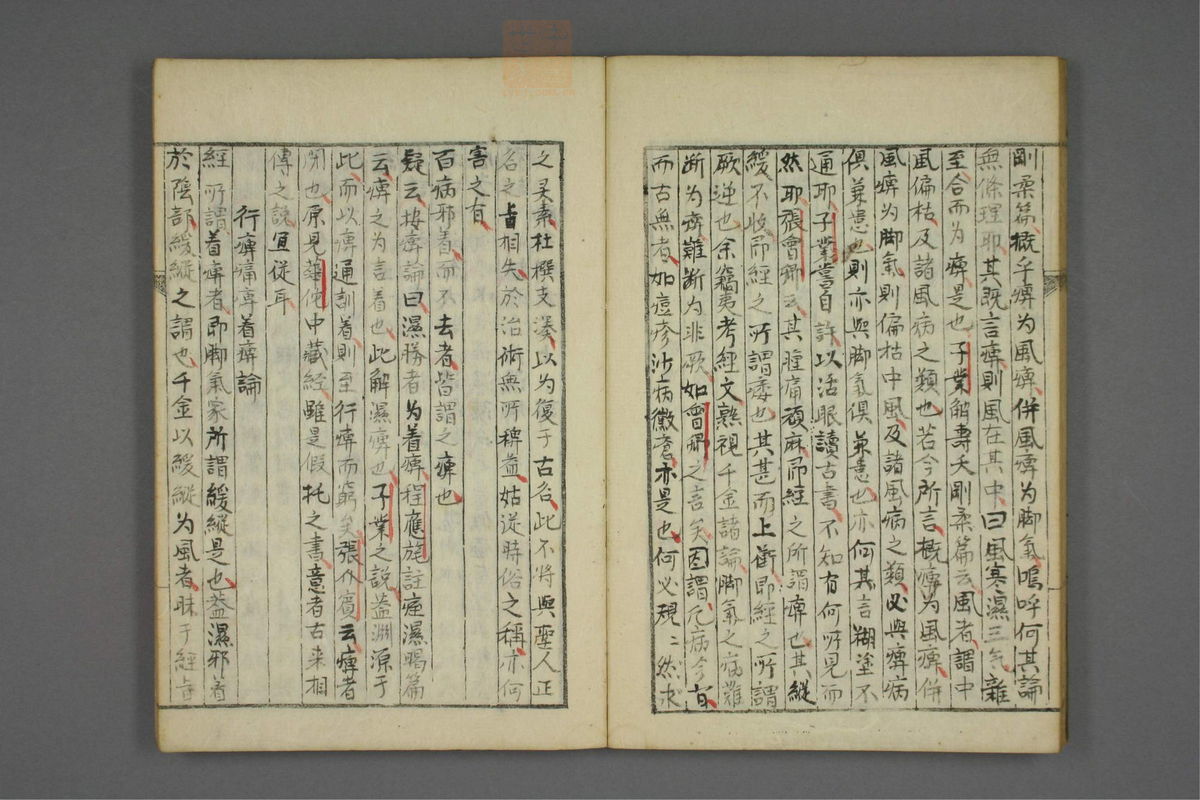 剛柔篇概乎痺為風痺併風痺為脚氣嗚呼何其論
無條理耶其既言痺則風在其中曰風寒濕三气雜
至合而為痺是也子業解壽夭剛柔篇云風者謂中
風偏枯及諸風病之類也若今所言概痺為風痺併
風痺為脚氣則偏枯中風及諸風病之類必與痺病
俱兼患也則亦與脚氣俱兼患也亦何其言糊塗不
通耶子業嘗自許以活眼讀古書不知有何所見而
然耶張會卿云其腫痛頑麻即經之所謂痺也其縱
緩不收即經之所謂痿也其甚而上衝即經之所謂
厥逆也余竊夷考經文熟視千金諸論脚氣之病難
断為痺難断為非厥如會卿之言矣因謂凡病今有
而古無者如痘疹沙病黴瘡亦是也何必規二然求
之灵素杜撰支湊以為復于古名此不將與聖人正
名之旨相失於治術無所稗益姑從時俗之稱亦何
害之有
百病邪着而不去者皆謂之痺也
疑云按痺論曰濕勝者為着痺程應旄註痙濕暍篇
云痺之為言着也此解濕痺也子業之說盖淵源于
此而以痺通訓着則至行痺而窮矣張介賓云痺者
閉也原見華佗中藏經雖是假托之書意者古来相
傳之說宜從耳
行痺痛痺着痺論
經所謂着痺者即脚氣家所謂緩縱是也盖濕邪着
於陰部緩縱之謂也千金以緩縱为風者昧于經旨